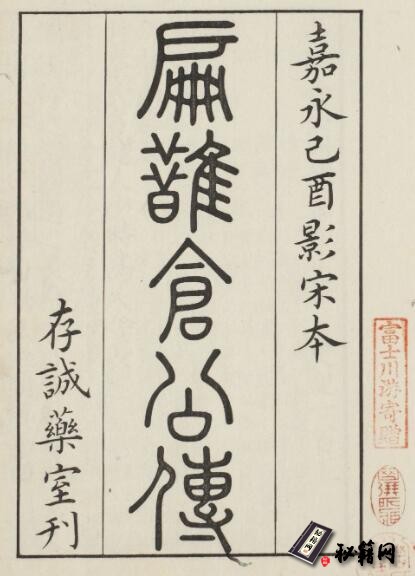 嘉永己酉影宋本
扁鵲倉公傳
存誠藥室刊
富士川游寄贈
秘籍网